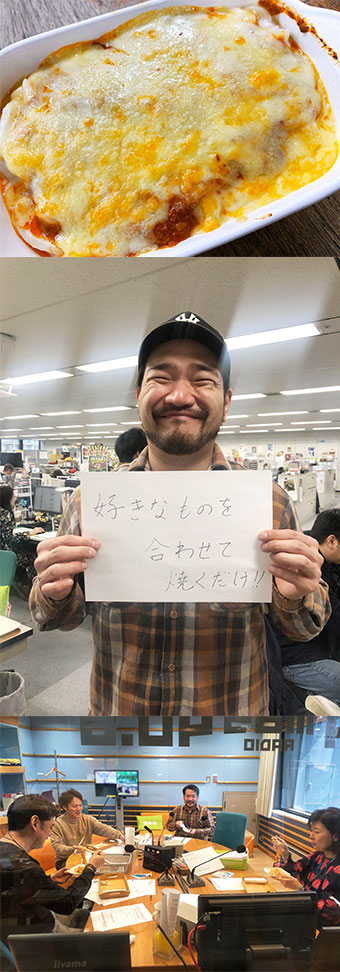 好きなものを
合わせて
焼くだけ!!
RADIO
iiyama